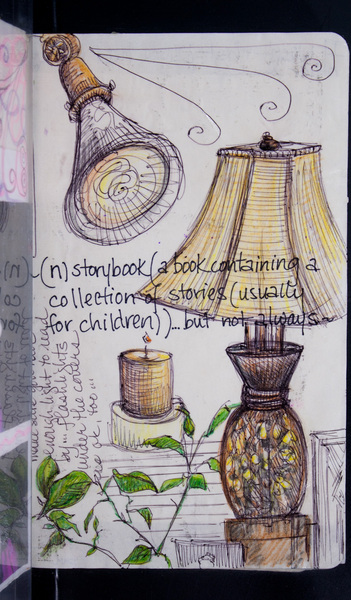 (n) storybook (a book containing a
collection of stories (usually
for children))... but not always ~
enough light to read
by... flashlights
under the covers
are ok, too...